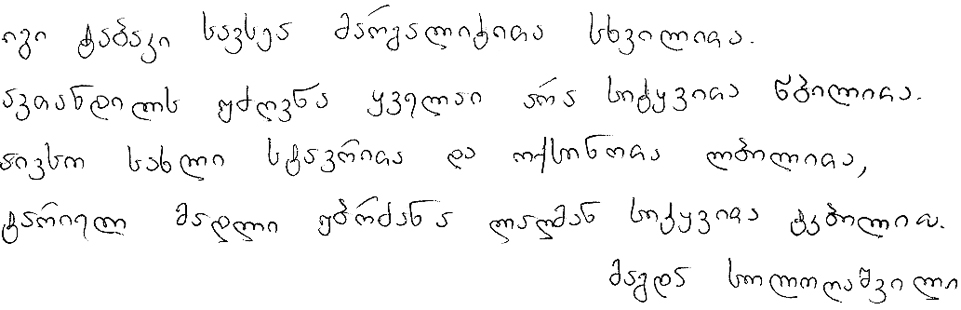 იგი ტაბაკი სავსეა მარგალიტითა სხვილითა.
ავთანდილს უძღვნა ყველაი არა სიტყვითა წბილითა.
აივსო სახლი სტავრითა და ოქსინოთა ლბილითა,
ტარიელ მადლი უბრძანა ლაღმან სიტყვითა ტკბილითა.
მაგდა სოლოღაშვილი